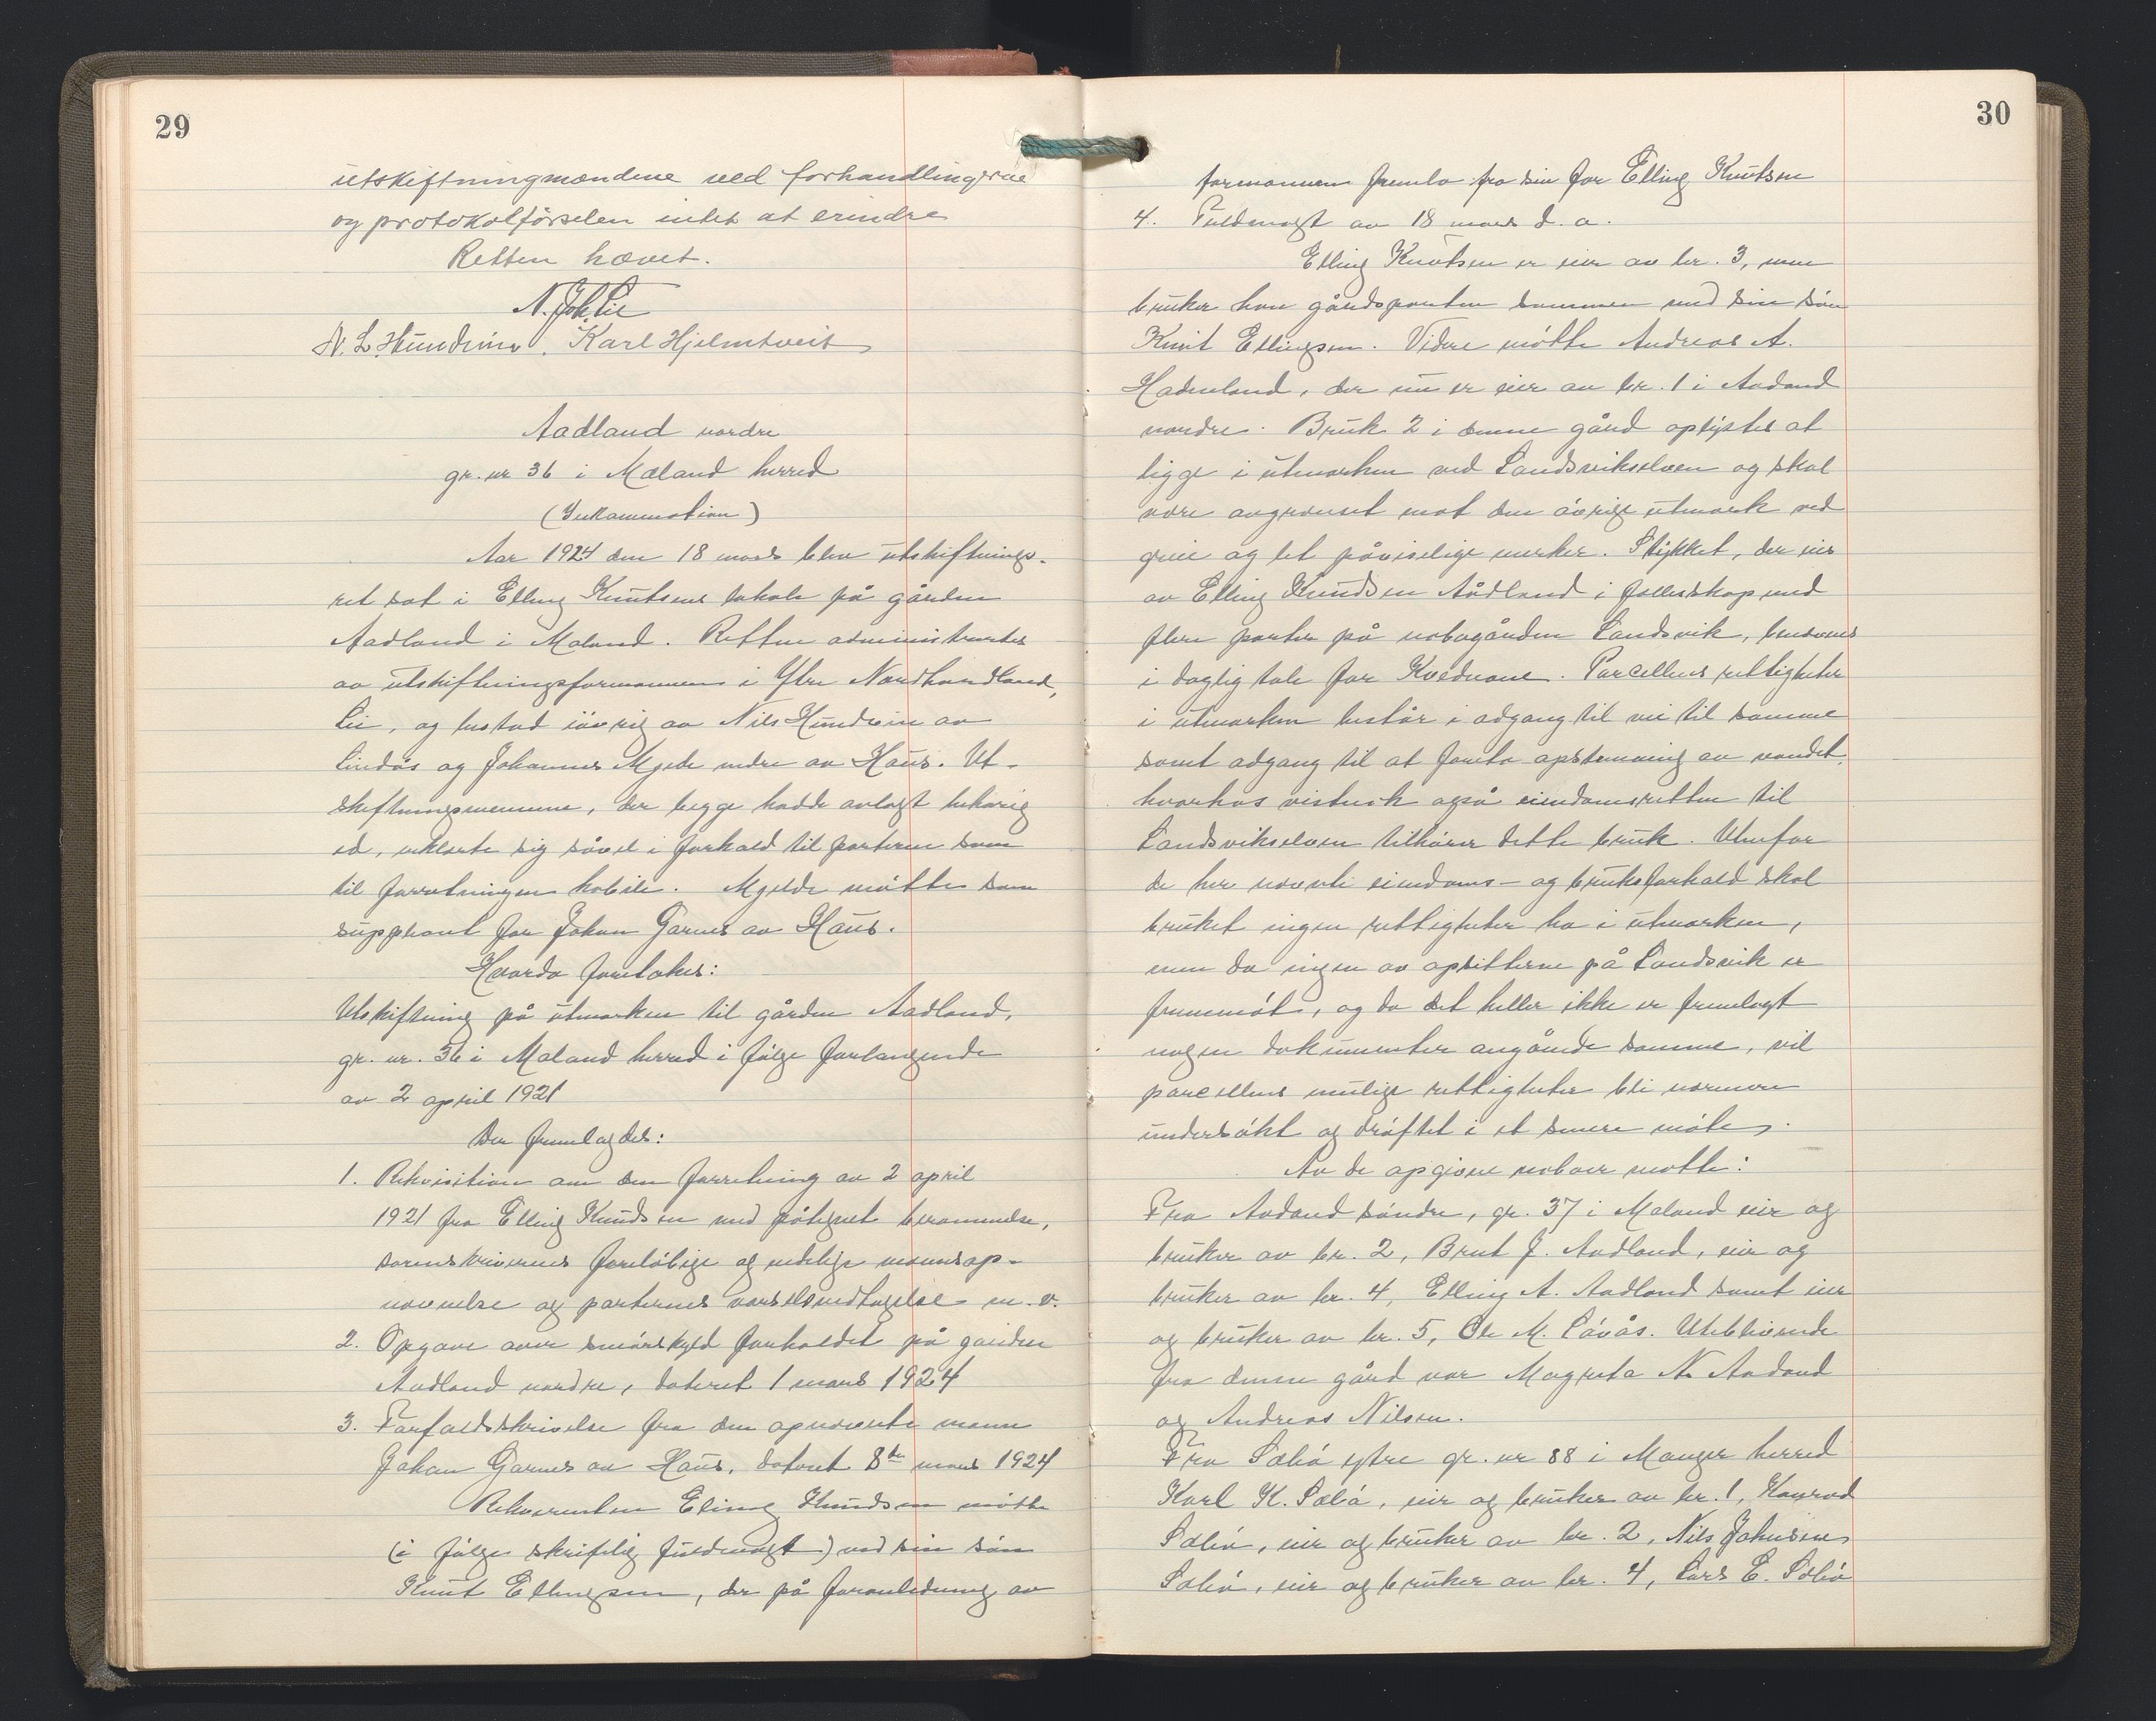 29
utskiftningmændene ved forhandlingerne
og protokolførselen intet at erindre
Retten hævet.
N. Joh. Lie
N. L. Hundvin. Karl Hjelmtveit
Aadland nordre
gr. nr 36 i Mæland herred
(Inkammination)
Aar 1924 den 18 mars blev utskiftnings-
ret sat i Elling Knutsens lokale på gården
Aadland i Mæland. Retten administrertes
av utskiftningsformannen i Ytre Nordhordland,
Lie, og bestod iøvrig av Nils Hundvin av
Lindås og Johannes Mjelde nedre av Haus. Ut-
skiftningsmennene, der begge hadde avlagt behørig
ed, erklærte sig såvel i forhold til parterne som
til forretningen habile. Mjelde møtte som
suppleant for Johan Garnes av Haus.
Hvorda foretokes:
Utskiftning på utmarken til gården Aadland,
gr. nr. 36 i Mæland herred i følge forlangende
av 2 april 1921
Der fremlagdes:
1. Rekvisition om den forretning av 2 april
1921 fra Elling Knudsen med påtegnet berammelse,
sorenskriverens foreløbige og endelige mannsop-
nevnelse og parternes varselsvedtagelse m. v.
2. Opgave over småskyld forholdet på gården
Aadland nordre, dateret 1 mars 1924
3. Forfaldsskrivelse fra den opnevnte mann
Johan Garnes av Haus, dateret 8de mars 1924
Rekvirenten Elling Knudsen møtte
(i følge skriftlig fuldmagt) ved sin søn
Knut Ellingsen, der på foranledning av
30
formannen fremla fra sin far Elling Knutsen
4. Fuldmagt av 18 mars d. a.
Elling Knutsen er eier av br. 3, men
bruker han gårdsparten sammen med sin søn
Knut Ellingsen. Videre møtte Andreas A.
Hadneland, der nu er eier av br. 1 i Aadland
nordre. Bruk 2 i denne gård oplystes at
ligge i utmarken ved Landsvikselven og skal
være avgrænset mot den øvrige utmark ved
greie og let påviselige merker. Stykket, der eies
av Elling Knudsen Ådland i fellesskap med
flere parter på nabogården Landsvik, benævnes
i daglig tale for Kvednane. Parcellens rettigheter
i utmarken består i adgang til vei til samme
samt adgang til at foreta opstemning av vandet,
hvorhos vistnok også eiendomsretten til
Landsvikselven tilhører dette bruk. Utenfor
de her nevnte eiendoms- og bruksforhold skal
bruket ingen rettigheter ha i utmarken,
men da ingen av opsitterne på Landsvik er
fremmøt, og da det heller ikke er fremlagt
nogen dokumenter angående samme, vil
parcellens mulige rettigheter bli nærmere
undersøkt og drøftet i et senere møte.
Av de opgivne naboer møtte:
Fra Aadland søndre, gr. 37 i Mæland eier og
bruker av br. 2, Brut J. Aadland, eier og
bruker av br. 4, Elling A. Aadland samt eier
og bruker av br. 5, Ole M. Løvås. Uteblivende
fra denne gård var Magreta N. Aadland
og Andreas Nilsen.
Fra Sæbø ytre gr. nr 88 i Manger herred
Karl K. Sæbø, eier og bruker av br. 1, Konrad
Sæbø, eier og bruker av br. 2, Nils Johnsen
Sæbø, eier og bruker av br. 4, Lars E. Sæbø